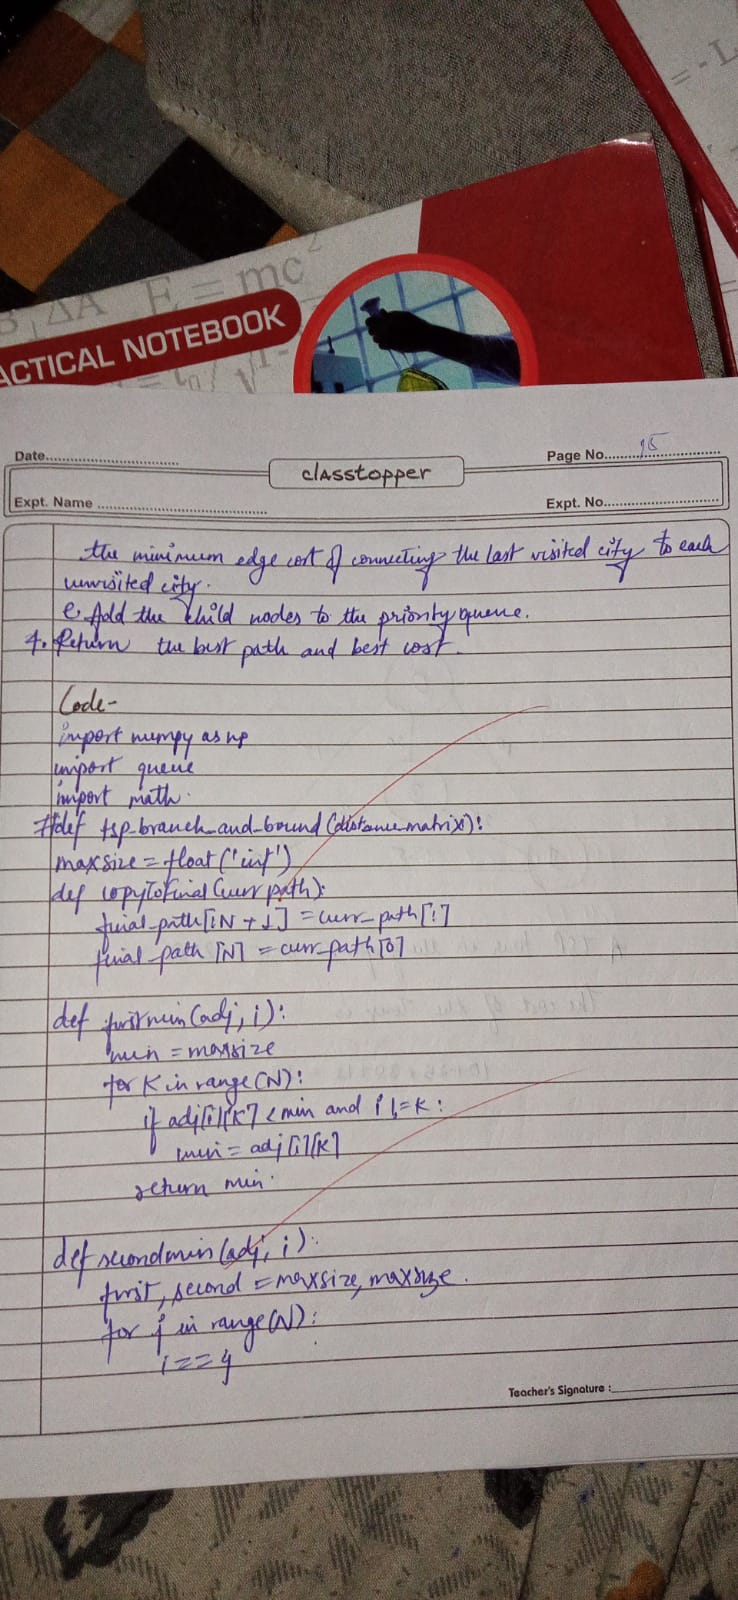 = - L
B, ΔA E = mc²
ACTICAL NOTEBOOK
Date
Page No. 15
classtopper
Expt. Name
Expt. No.
the minimum edge cost of connecting the last visited city to each
unvisited city.
e. Add the child nodes to the priority queue.
4. Return the best path and best cost.
Code-
import numpy as np
import queue
import math.
#def tsp-branch-and-bound (distance-matrix):
maxsize = float('inf')
def copyToFinal (curr path):
final-path[:N + 1] = curr-path[:]
final-path [N] = curr-path[0]
def firstmin (adj, i):
min = maxsize
for K in range(N):
if adj[i][K] < min and i != K:
min = adj [i][K]
return min.
def secondmin (adj, i):
first, second = maxsize, maxsize.
for j in range(N):
i == j
Teacher's Signature :